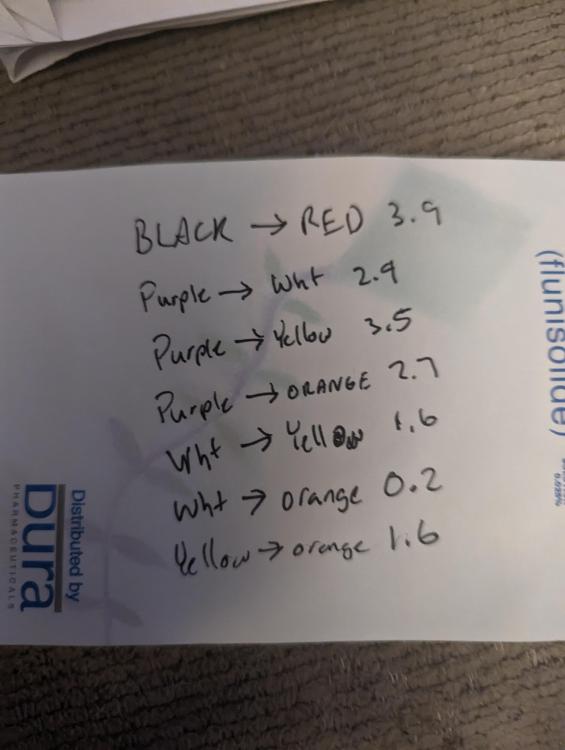 BLACK → RED 3.9
Purple → Wht 2.9
Purple → Yellow 3.5
Purple → ORANGE 2.7
Wht → Yellow 1.6
Wht → orange 0.2
Yellow → orange 1.6
(flunisolide)
Distributed by
Dura
PHARMACEUTICALS